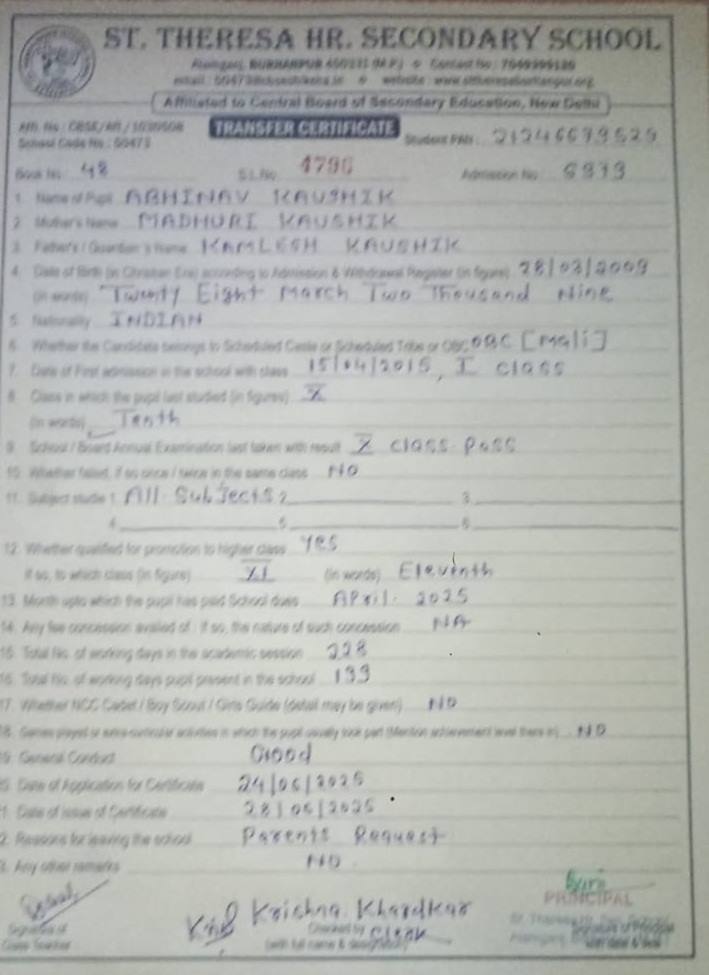 ST. THERESA HR. SECONDARY SCHOOL
Alamganj, BURHANPUR 450331 (M.P.) Contact No.:
Affiliated to Central Board of Secondary Education, New Delhi
Aff. No.: CBSE/Aff./1030508 TRANSFER CERTIFICATE Student PAN:
School Code No.: 50473
Book No. 48 S.L.No. 4796 Admission No.
1. Name of Pupil ABHINAV KAUSHIK
2. Mother's Name MADHURI KAUSHIK
3. Father's / Guardian's Name KAMLESH KAUSHIK
4. Date of Birth (in Christian Era) according to Admission & Withdrawal Register (in figure) 28/03/2009
(in words) Twenty Eight March Two Thousand Nine
5. Nationality INDIAN
6. Whether the Candidate belongs to Scheduled Caste or Scheduled Tribe or OBC OBC [Mali]
7. Date of First admission in the school with class 15/04/2015, I class
8. Class in which the pupil last studied (in figures) X
(in words) Tenth
9. School / Board Annual Examination last taken with result X class Pass
10. Whether failed, if so once / twice in the same class NO
11. Subject studied 1. All Subjects 2. 3.
4. 5. 6.
12. Whether qualified for promotion to higher class Yes
If so, to which class (in figure) XI (in words) Eleventh
13. Month upto which the pupil has paid School dues April. 2025
14. Any fee concession availed of : If so, the nature of such concession NA
15. Total No. of working days in the academic session 228
16. Total No. of working days pupil present in the school 199
17. Whether NCC Cadet / Boy Scout / Girls Guide (detail may be given) NO
18. Games played or extra-curricular activities in which the pupil usually took part (Mention achievement level there in) NO
19. General Conduct Good
Date of Application for Certificate 24/06/2025
Date of issue of Certificate 28/06/2025
Reasons for leaving the school Parents Request
Any other remarks NO
PRINCIPAL
Krishna Khardkar
Signature of Checked by Clerk Signature of Principal
Class Teacher (with full name & designation) with date & seal